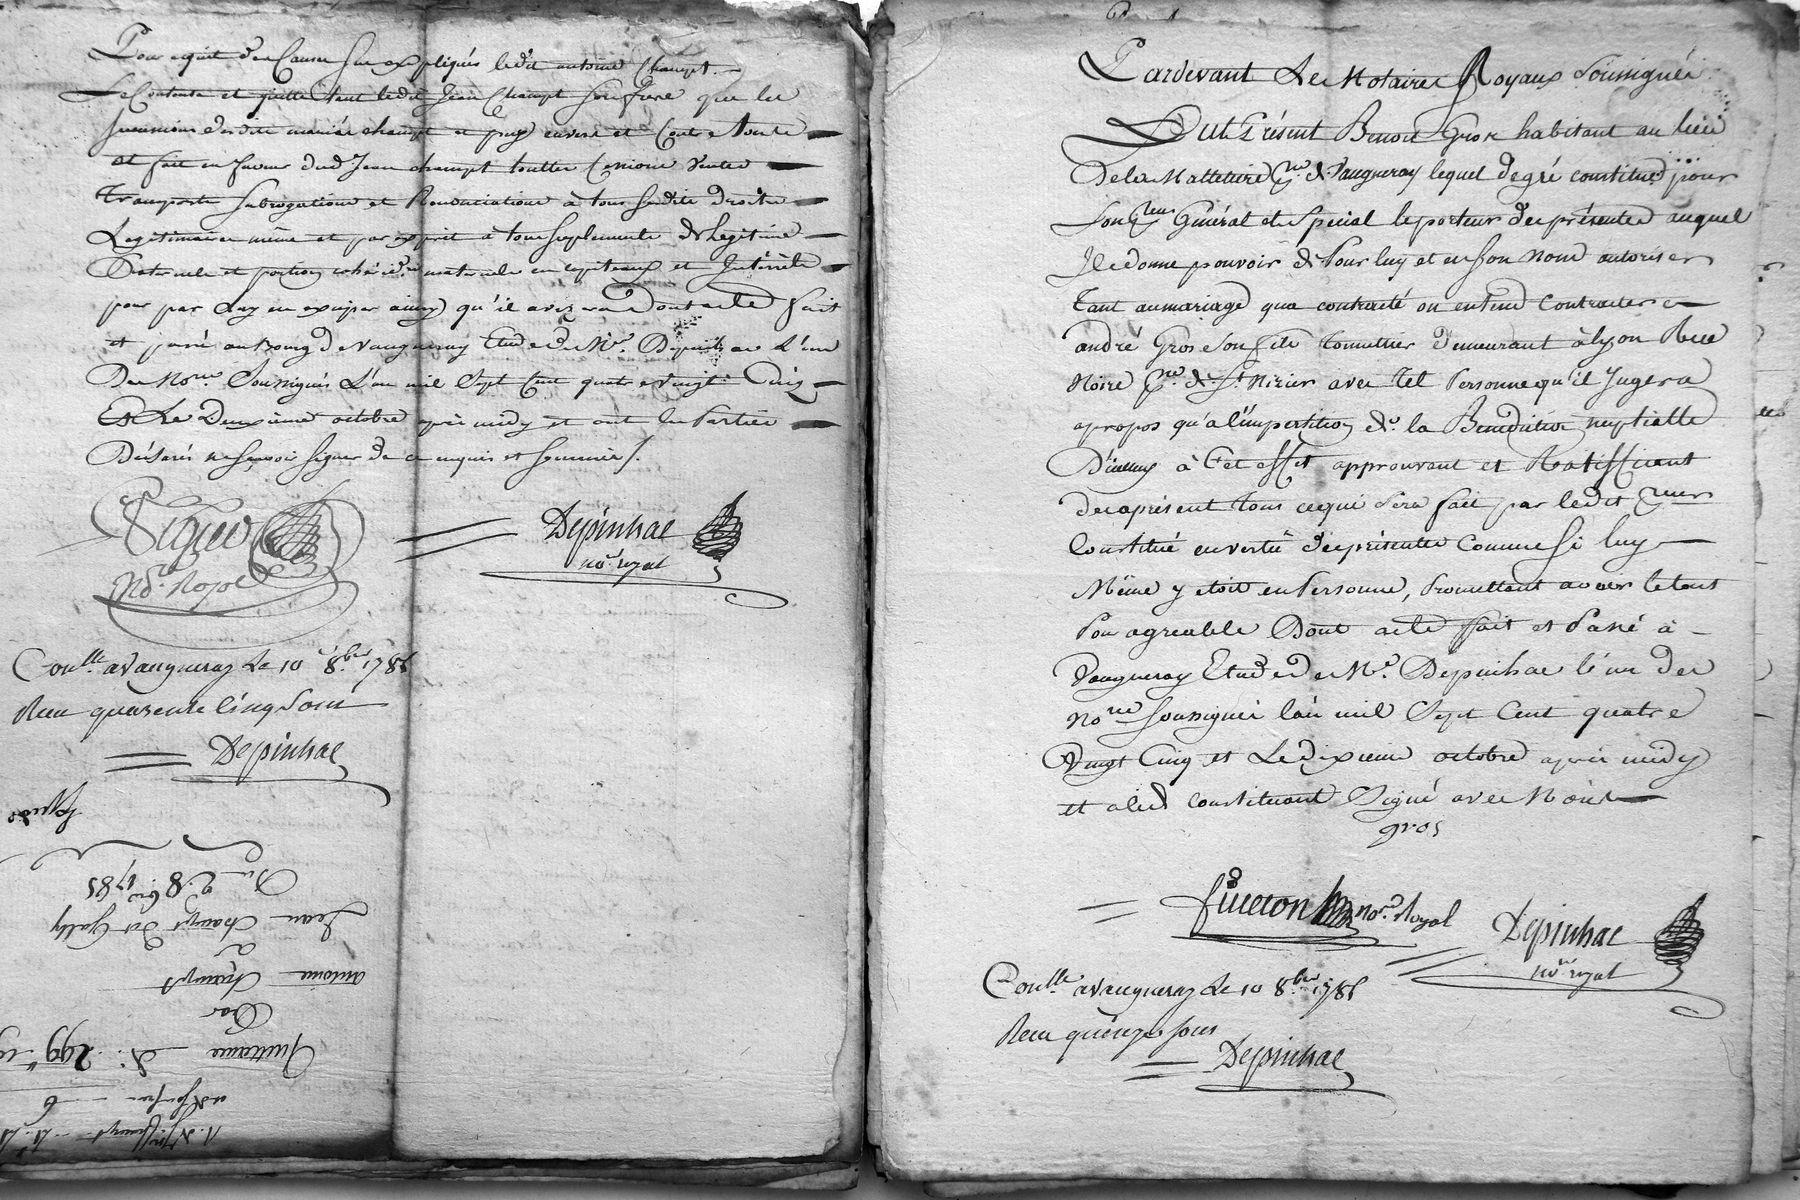 Pour raison des Causes sus expliqués ledit antoine Champt
Se Contente et quitte tant ledit Jean Champt son frere que les
successions desdits mariés champt et puy envers et Contre toute
et fait en faveur dud Jean champt touttes Cessions ventes
transports subrogations et Renonciations à tous susdits droits
Legitimaires même et par exprit à tous suplements de legitime
Paternelle et portion maternelle en capitaux et Intérêts
pour par Luy en exciper ainsy qu'il avizera Dont acte fait
et passé au Bourg de Vaugneray Etude de Me. Depinhac L'un
Des Nores. Soussignés L'an mil Sept Cent quatre vingt Cinq
Et Le Deuxième octobre après midy et ont les Parties
Déclarés ne sçavoir signer de ce enquis et sommés /.
Depinhac
nore. royal
No. Royal
Conlle. a vaugneray Le 10 8.bre 1785
Recu quarente Cinq Sous
Depinhac
Du 2. 8bre 1785
Jean Champt
à
antoine Champt
Par
Quittance de 299
Pardevant Les Notaires Royaux Soussignés
Fut Présent Benoit Gros habitant au lieu
De la Malletiere Psse. de Vaugneray lequel de gré constitue pour
Son Preur Général et Spécial le porteur des présentes auquel
Il donne pouvoir de Pour luy et en son Nom autoriser
tant au mariage qua contracté ou entend Contracter
andré Gros son fils tonnellier demeurant à lyon Rue
Noire Psse. de St. Nizier avec tel Personne qu'il Jugera
apropos qu'a l'impertition de la Bénédiction nuptialle
D'iceluy à Cet effet approuvant et Ratiffiant
des aprésent tous ce qui sera fait par ledit Preur
Constitué en vertu des présentes Comme si luy
Même y etoit en Personne, Promettant avoir le tout
Pour agreable Dont acte fait et Passé à
Vaugneray Etude de Me. Depinhac l'un des
Nores soussignés l'an mil Sept Cent quatre
Vingt Cinq et Le dixieme octobre après midy
et a led constituant Signé avec Nores
gros
nore. Royal
Depinhac
nore royal
Conlle. a vaugneray Le 10 8.bre 1785
Recu quinze sous
Depinhac